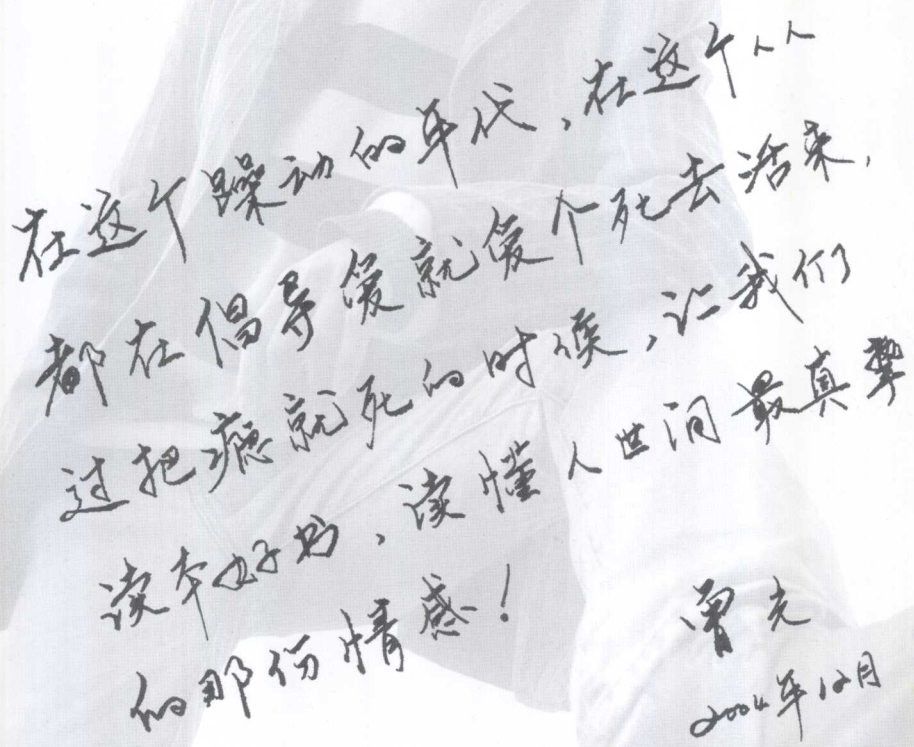 在这个躁动的年代，在这个人人
都在倡导爱就爱个死去活来，
过把瘾就死的时候，让我们
读本好书，读懂人世间最真挚
的那份情感！
曾光
2004年12月